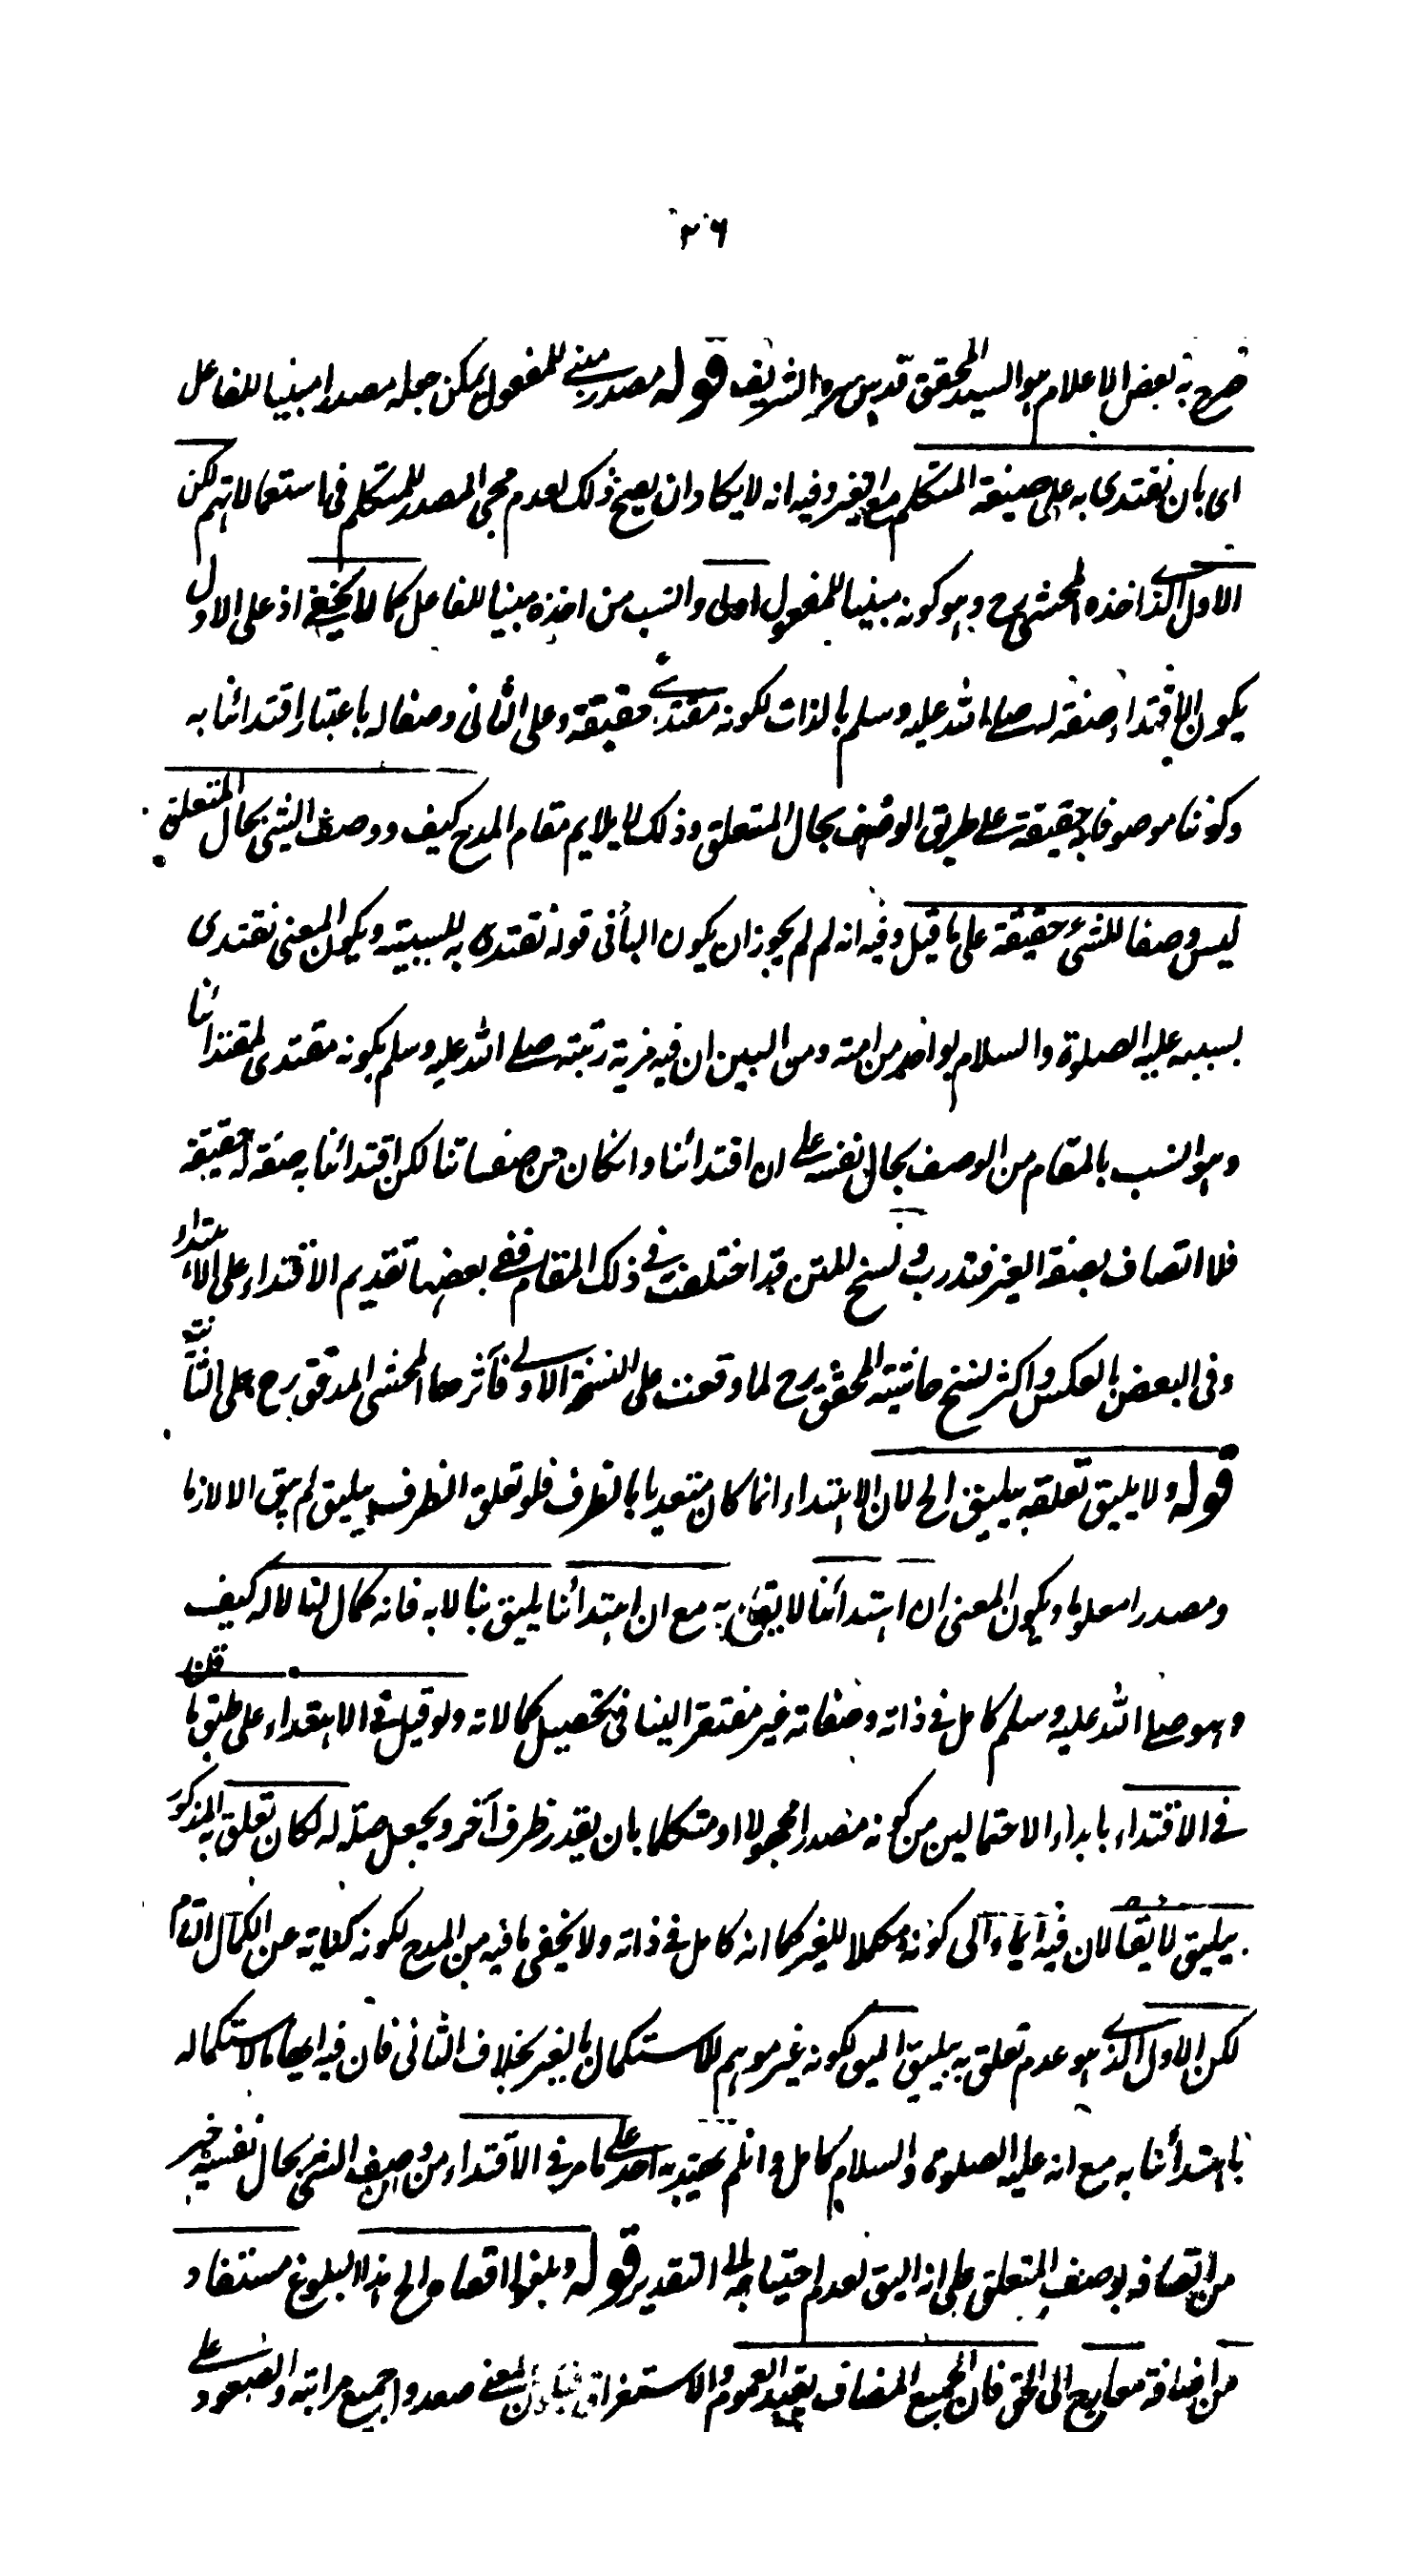 ٢٦
صرح به بعض الاعلام هو السيد المحقق قدس سره الشريف قوله مصدر مبنے للمفعول يمكن جعله مصدرا مبنيا للفاعل
اى بان نقتدى به على صيغة المتكلم مع الغير وفيه انه لا يكاد ان يصح ذلك لعدم مجئ المصدر للمتكلم فى استعمالاتهم لكن
الاول الذے اخذه المحشى رح وهو كونه مبنيا للمفعول اولى وانسب من اخذه مبنيا للفاعل كما لا يخفے اذ على الاول
يكون الاقتداء صفة له صلے الله عليه وسلم بالذات لكونه مقتدے حقيقة وعلى الثانى وصفا له باعتبار اقتدائنا به
وكوننا موصوفا به حقيقة علے طريق الوصف بحال المتعلق وذلك لا يلايم مقام المدح كيف ووصف الشئ بحال المتعلق
ليس وصفا للشئ حقيقة على ما قيل وفيه انه لم لم يجوز ان يكون البأ فى قوله نقتدى به للسببية ويكون المعنى نقتدى
بسببه عليه الصلوة والسلام بواحد من امته ومن البين ان فيه مزية رتبته صلے الله عليه وسلم بكونه مقتدى لمقتدائنا
وهو انسب بالمقام من الوصف بحال نفسه علے ان اقتدائنا وانكان من صفاتنا لكن اقتدائنا به صفة له حقيقة
فلا اتصاف بصفة الغير فتدرب ونسخ للمتن قد اختلفت فے ذلك المقام ففے بعضها تقديم الاقتداء على الاهتداء
وفى البعض بالعكس واكثر نسخ حاشية المحقق رح لما وقعت على النسخة الاولے فآثرها المحشى المدقق رح على الثانية
قوله ولا يليق تعلقه بيليق الخ لان الاهتداء انما كان متعديا بالظرف فلو تعلق الظرف بيليق لم يبق الا لازما
ومصدرا معلوما ويكون المعنى ان اهتدائنا لا يق به مع ان اهتدائنا يليق بنا لا به فانه كمال لنا لا له كيف
وهو صلے الله عليه وسلم كامل فے ذاته وصفاته غير مفتقر الينا فى تحصيل كمالاته ولو قيل فے الاهتداء على طبق ما قلنا
فے الاقتداء بابداء الاحتمالين من كونه مصدرا مجهولا او متكلما بان يقدر ظرف آخر ويجعل صلة له لكان تعلق به المذكور
بيليق لائقا لان فيه ايماء الى كونه مكملا للغير كما انه كامل فے ذاته ولا يخفى ما فيه من المدح لكونه كناية عن الكمال التام
لكن الاول الذے هو عدم تعلق به بيليق اليق لكونه غير موهم للاستكمال بالغير بخلاف الثانى فان فيه ايهاما لاستكماله
باهتدائنا به مع انه عليه الصلوة والسلام كامل وانلم يهتد به احد علے ما مر فے الاقتداء من وصف الشئ بحال نفسه خير
من اتصافه بوصف المتعلق على انه اليق لعدم احتياجه الى التقدير قوله وبلغوا اقصاه الخ هذا البلوغ مستفاد
من اضافة معارج الى الحق فان الجمع المضاف يفيد العموم والاستغراق فيكون المعنے صعدوا جميع مراتبه والصعود علے